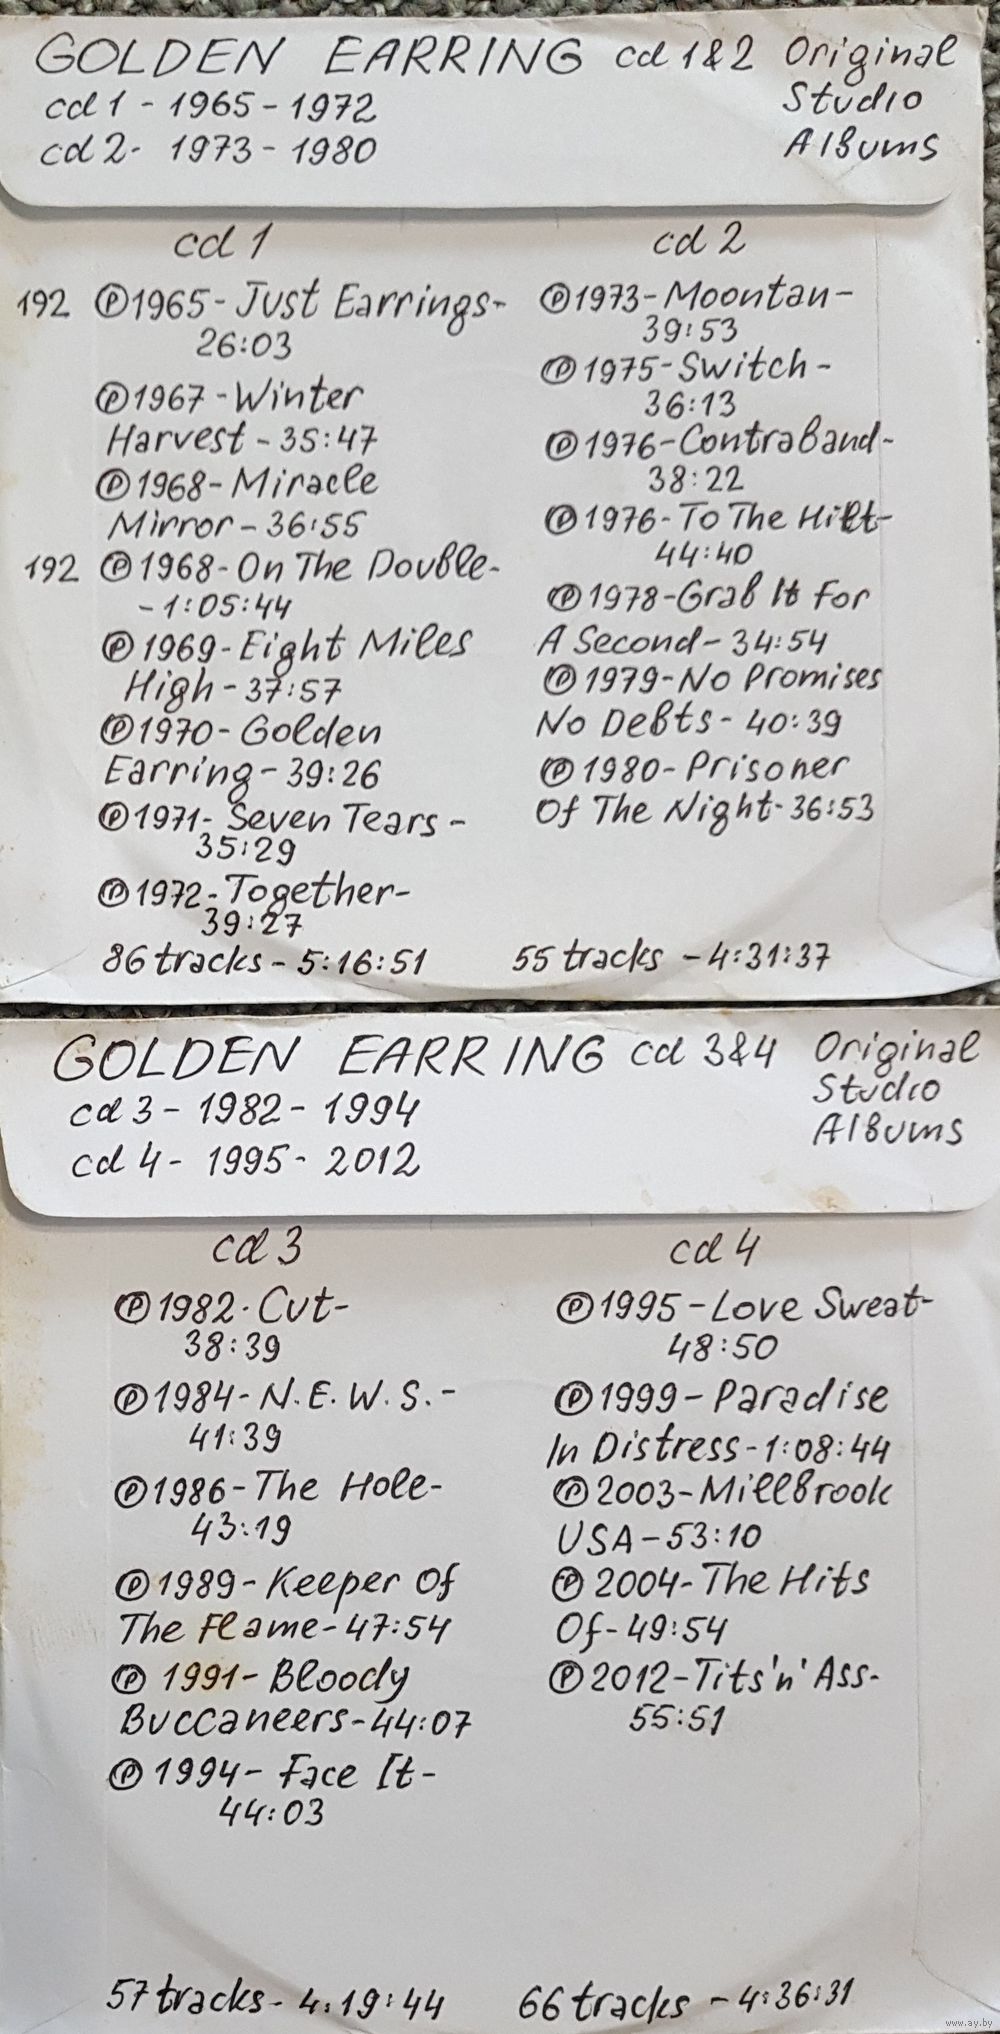 GOLDEN EARRING cd 1&2 Original
Studio
Albums
cd 1 - 1965 - 1972
cd 2 - 1973 - 1980
cd 1
192 ℗1965 - Just Earrings -
26:03
℗1967 - Winter
Harvest - 35:47
℗1968 - Miracle
Mirror - 36:55
192 ℗1968 - On The Double -
- 1:05:44
℗1969 - Eight Miles
High - 37:57
℗1970 - Golden
Earring - 39:26
℗1971 - Seven Tears -
35:29
℗1972 - Together -
39:27
86 tracks - 5:16:51
cd 2
℗1973 - Moontan -
39:53
℗1975 - Switch -
36:13
℗1976 - Contraband -
38:22
℗1976 - To The Hilt -
44:40
℗1978 - Grab It For
A Second - 34:54
℗1979 - No Promises
No Debts - 40:39
℗1980 - Prisoner
Of The Night - 36:53
55 tracks - 4:31:37
GOLDEN EARRING cd 3&4 Original
Studio
Albums
cd 3 - 1982 - 1994
cd 4 - 1995 - 2012
cd 3
℗1982 - Cut -
38:39
℗1984 - N.E.W.S. -
41:39
℗1986 - The Hole -
43:19
℗1989 - Keeper Of
The Flame - 47:54
℗ 1991 - Bloody
Buccaneers - 44:07
℗ 1994 - Face It -
44:03
57 tracks - 4:19:44
cd 4
℗1995 - Love Sweat -
48:50
℗1999 - Paradise
In Distress - 1:08:44
℗2003 - Millbrook
USA - 53:10
℗ 2004 - The Hits
Of - 49:54
℗2012 - Tits 'n' Ass -
55:51
66 tracks - 4:36:31
www.ay.by